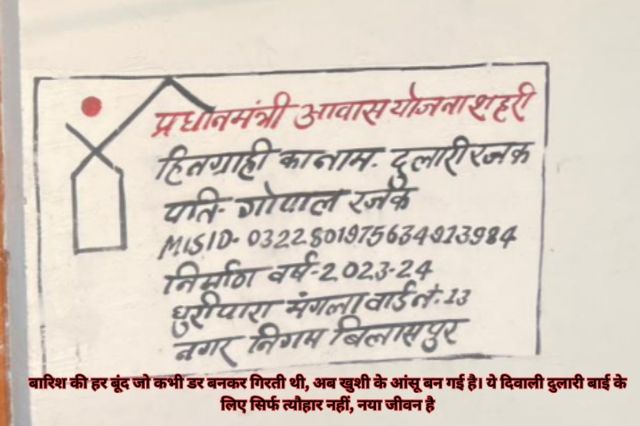 प्रधानमंत्री आवास योजना शहरी
हितग्राही का नाम. दुलारी रजक
पति- गोपाल रजक
MISID- 0322801975634913984
निर्माण वर्ष- 2023-24
धुरीपारा मंगला वार्ड नं. 13
नगर निगम बिलासपुर
बारिश की हर बूंद जो कभी डर बनकर गिरती थी, अब खुशी के आंसू बन गई है। ये दिवाली दुलारी बाई के
लिए सिर्फ त्यौहार नहीं, नया जीवन है